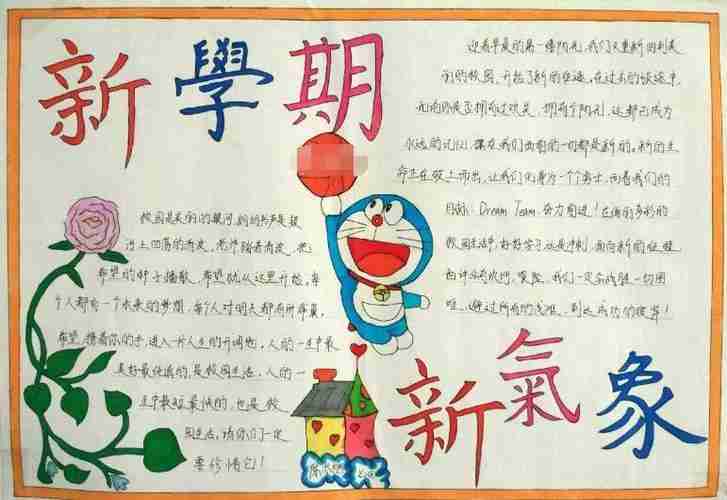 新學期
迎着早晨的第一缕阳光,我们又重新回到美
丽的校园,开始了新的征途。在过去的旅途中
无论你是否拥有过欢笑、拥有过阳光,这都已成为
永远的记忆,摆在我们面前的一切都是新的。新的生
命正在破土而出,让我们化身为一个勇士,向着我们的
目标:Dream Team,奋力前进!在绚丽多彩的
校园生活中,好好学习就是冲刺,面向新的征程
也许会有坎坷、艰险,我们一定会战胜一切困
难,避过所有的浅滩,到达成功的彼岸!
校园是美丽的银河,朗朗书声是银
河上回荡的清波,老师踏着清波,把
希望的种子播撒,希望就从这里开始。每
个人都有一个未来的梦想,每个人对明天都有所希冀。
希望携着你的手,进入一片人生的开阔地。人的一生中最
美好最快乐的,是校园生活,人的一
生中最短最快的,也是校
园生活,请你们一定
要珍惜它!
新氣象